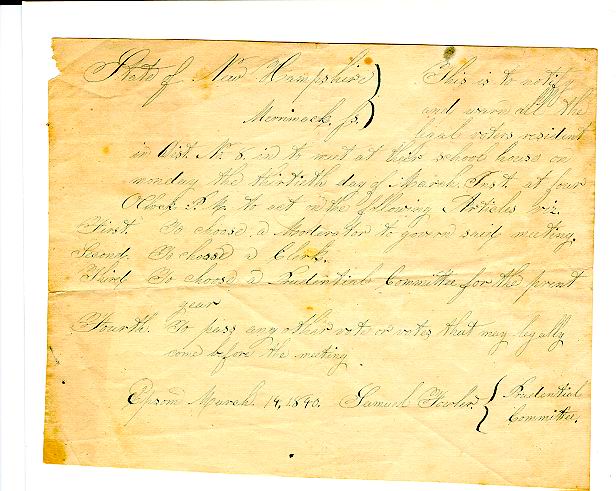 State of New Hampshire } This is to notify
Merrimack. Ss. } and warn all the
legal voters resident
in Dist. No 6. in to meet at their school house on
monday the thirtieth day of March. Inst. at four
Oclock P. M. to act on the following Articles viz.
First. To choose a Moderator to govern said meeting.
Second. To choose a Clerk.
Third To choose a Prudential Committee for the
year
Fourth. To pass any other vote or votes that may legally
come before the meeting.
Epsom March 14, 1840. Samuel Fowler. { Prudential
Committee.